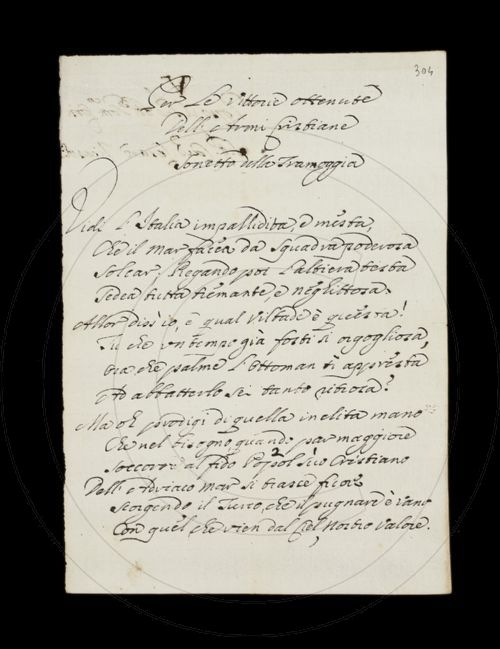 304
Per Le Vittorie ottenute
Dall'Armi Cristiane
Sonetto della Tramoggia
Vidi L'Italia impallidita, e mesta,
Che il mar facea da Squadra poderosa
Solcar, Piegando poi L'altiera testa
Sedea tutta tremante, e neghittosa.
Allor diss'io, e qual viltade è questa!
Tu che un tempo già fosti sì orgogliosa,
Ora che palme L'Ottoman ti appresta
Ad abbatterlo sei tanto ritrosa?
Ma oh prodigi di quella inclita mano
Che nel bisogno quando par maggiore
Soccorre al fido Popol suo Cristiano
Dall'Adriaco Mar si trasse fuore
Scorgendo il Turco, che il pugnare è vano
Con quel che vien dal Ciel Nostro Valore.